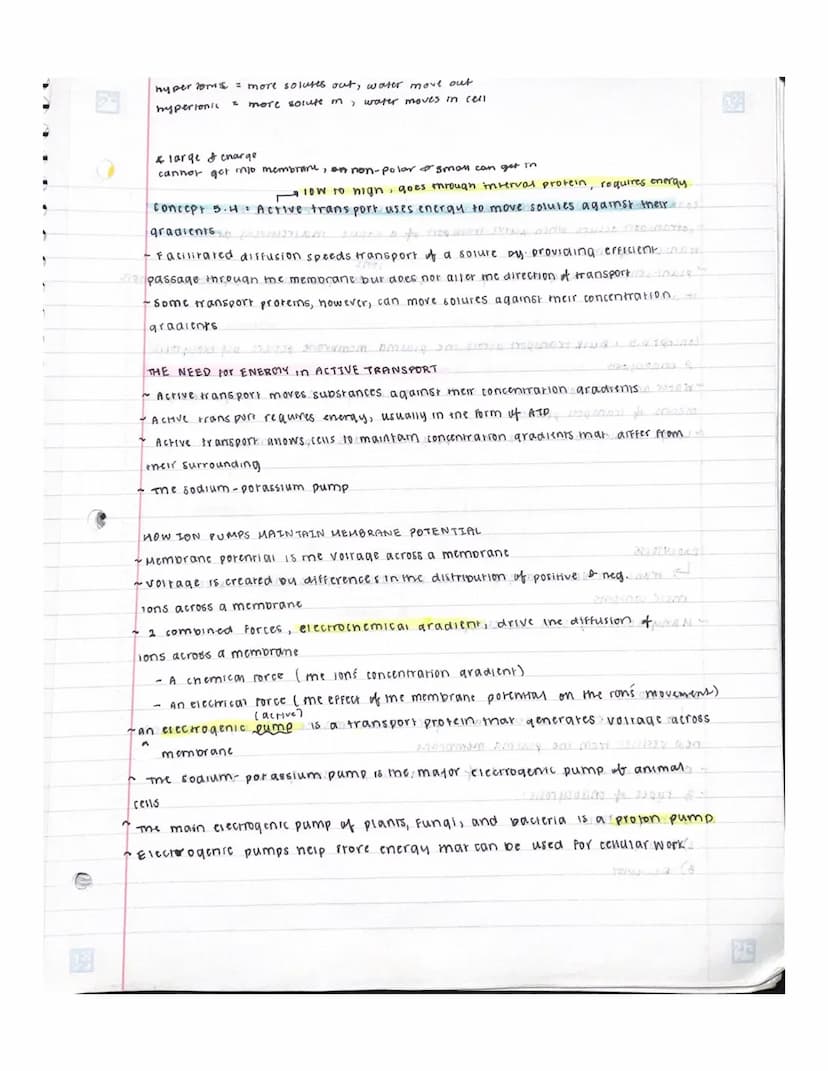 hypertonic = more solutes out, water move out
hypertonic = more solute in, water moves in cell
& large & charge
cannot get into membrane, non-polar & small can get in
low to high, goes through interval protein, requires energy
Concept 5.4: Active transport uses energy to move solutes against their
gradients
~ Facilitated diffusion speeds transport of a solute by providing efficient
passage through the membrane but does not alter the direction of transport
~ Some transport proteins, however, can move solutes against their concentration
gradients
THE NEED for ENERGY in ACTIVE TRANSPORT
~ Active transport moves substances against their concentration gradients
~ Active transport requires energy, usually in the form of ATP
~ Active transport allows cells to maintain concentration gradients that differ from
their surrounding
~ The sodium-potassium pump
HOW ION PUMPS MAINTAIN MEMBRANE POTENTIAL
~ Membrane potential is the voltage across a membrane
~ Voltage is created by differences in the distribution of positive & neg.
ions across a membrane
~ 2 combined forces, electrochemical gradient, drive the diffusion of
ions across a membrane
- A chemical force (the ion's concentration gradient)
- An electrical force (the effect of the membrane potential on the ion's movement)
(active)
~ An electrogenic pump is a transport protein that generates voltage across
^ membrane
~ The sodium-potassium pump is the major electrogenic pump of animal
cells
~ The main electrogenic pump of plants, fungi, and bacteria is a proton pump
~ Electrogenic pumps help store energy that can be used for cellular work